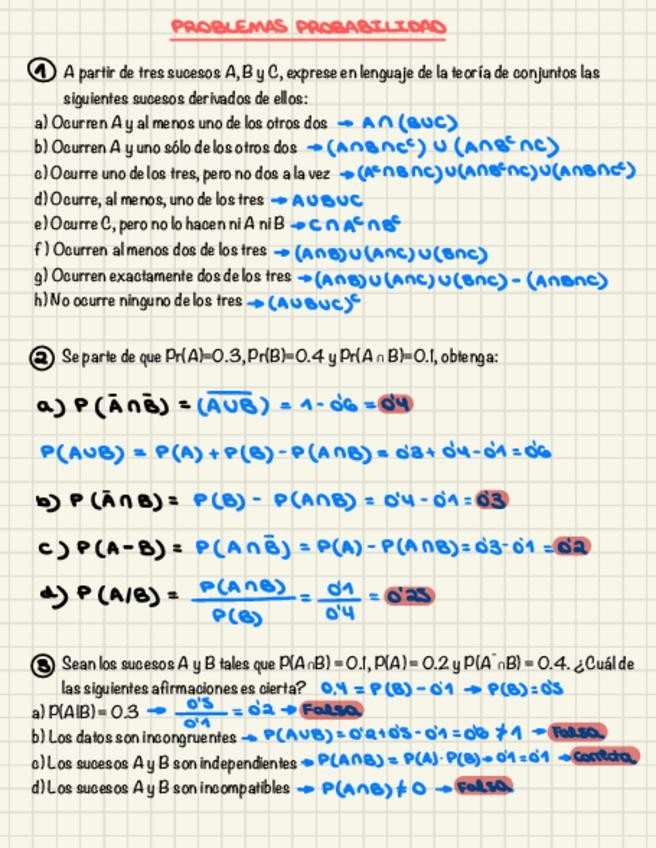 PROBLEMAS PROBABILIDAD
1 A partir de tres sucesos A, B y C, exprese en lenguaje de la teoría de conjuntos las
siguientes sucesos derivados de ellos:
a) Ocurren A y al menos uno de los otros dos → A∩(B∪C)
b) Ocurren A y uno sólo de los otros dos → (A∩B∩Cᶜ) ∪ (A∩Bᶜ∩C)
c) Ocurre uno de los tres, pero no dos a la vez → (Aᶜ∩B∩C)∪(A∩Bᶜ∩C)∪(A∩B∩Cᶜ)
d) Ocurre, al menos, uno de los tres → A∪B∪C
e) Ocurre C, pero no lo hacen ni A ni B → C∩Aᶜ∩Bᶜ
f) Ocurren al menos dos de los tres → (A∩B)∪(A∩C)∪(B∩C)
g) Ocurren exactamente dos de los tres → (A∩B)∪(A∩C)∪(B∩C) - (A∩B∩C)
h) No ocurre ninguno de los tres → (A∪B∪C)ᶜ
2 Se parte de que Pr(A)=0.3, Pr(B)=0.4 y Pr(A∩B)=0.1, obtenga:
a) P(Ā∩B̄) = (A̅∪̅B̅) = 1-0'6 = 0'4
P(A∪B) = P(A)+P(B)-P(A∩B) = 0'3+0'4-0'1=0'6
b) P(Ā∩B) = P(B) - P(A∩B) = 0'4-0'1 = 0'3
c) P(A-B) = P(A∩B̄) = P(A)-P(A∩B)=0'3-0'1 = 0'2
d) P(A/B) = P(A∩B)/P(B) = 0'1/0'4 = 0'25
3 Sean los sucesos A y B tales que P(A∩B)=0.1, P(A)=0.2 y P(A¯∩B)=0.4. ¿Cuál de
las siguientes afirmaciones es cierta? 0,4 = P(B)-0'1 → P(B)=0'5
a) P(A|B)=0.3 → 0'5/0'1 = 0'2 → Falsa
b) Los datos son incongruentes → P(A∪B)=0'2+0'5-0'1=0'6 ≠ 1 → Falsa
c) Los sucesos A y B son independientes → P(A∩B) = P(A)·P(B) → 0'1=0'1 → Correcta
d) Los sucesos A y B son incompatibles → P(A∩B)≠0 → Falsa